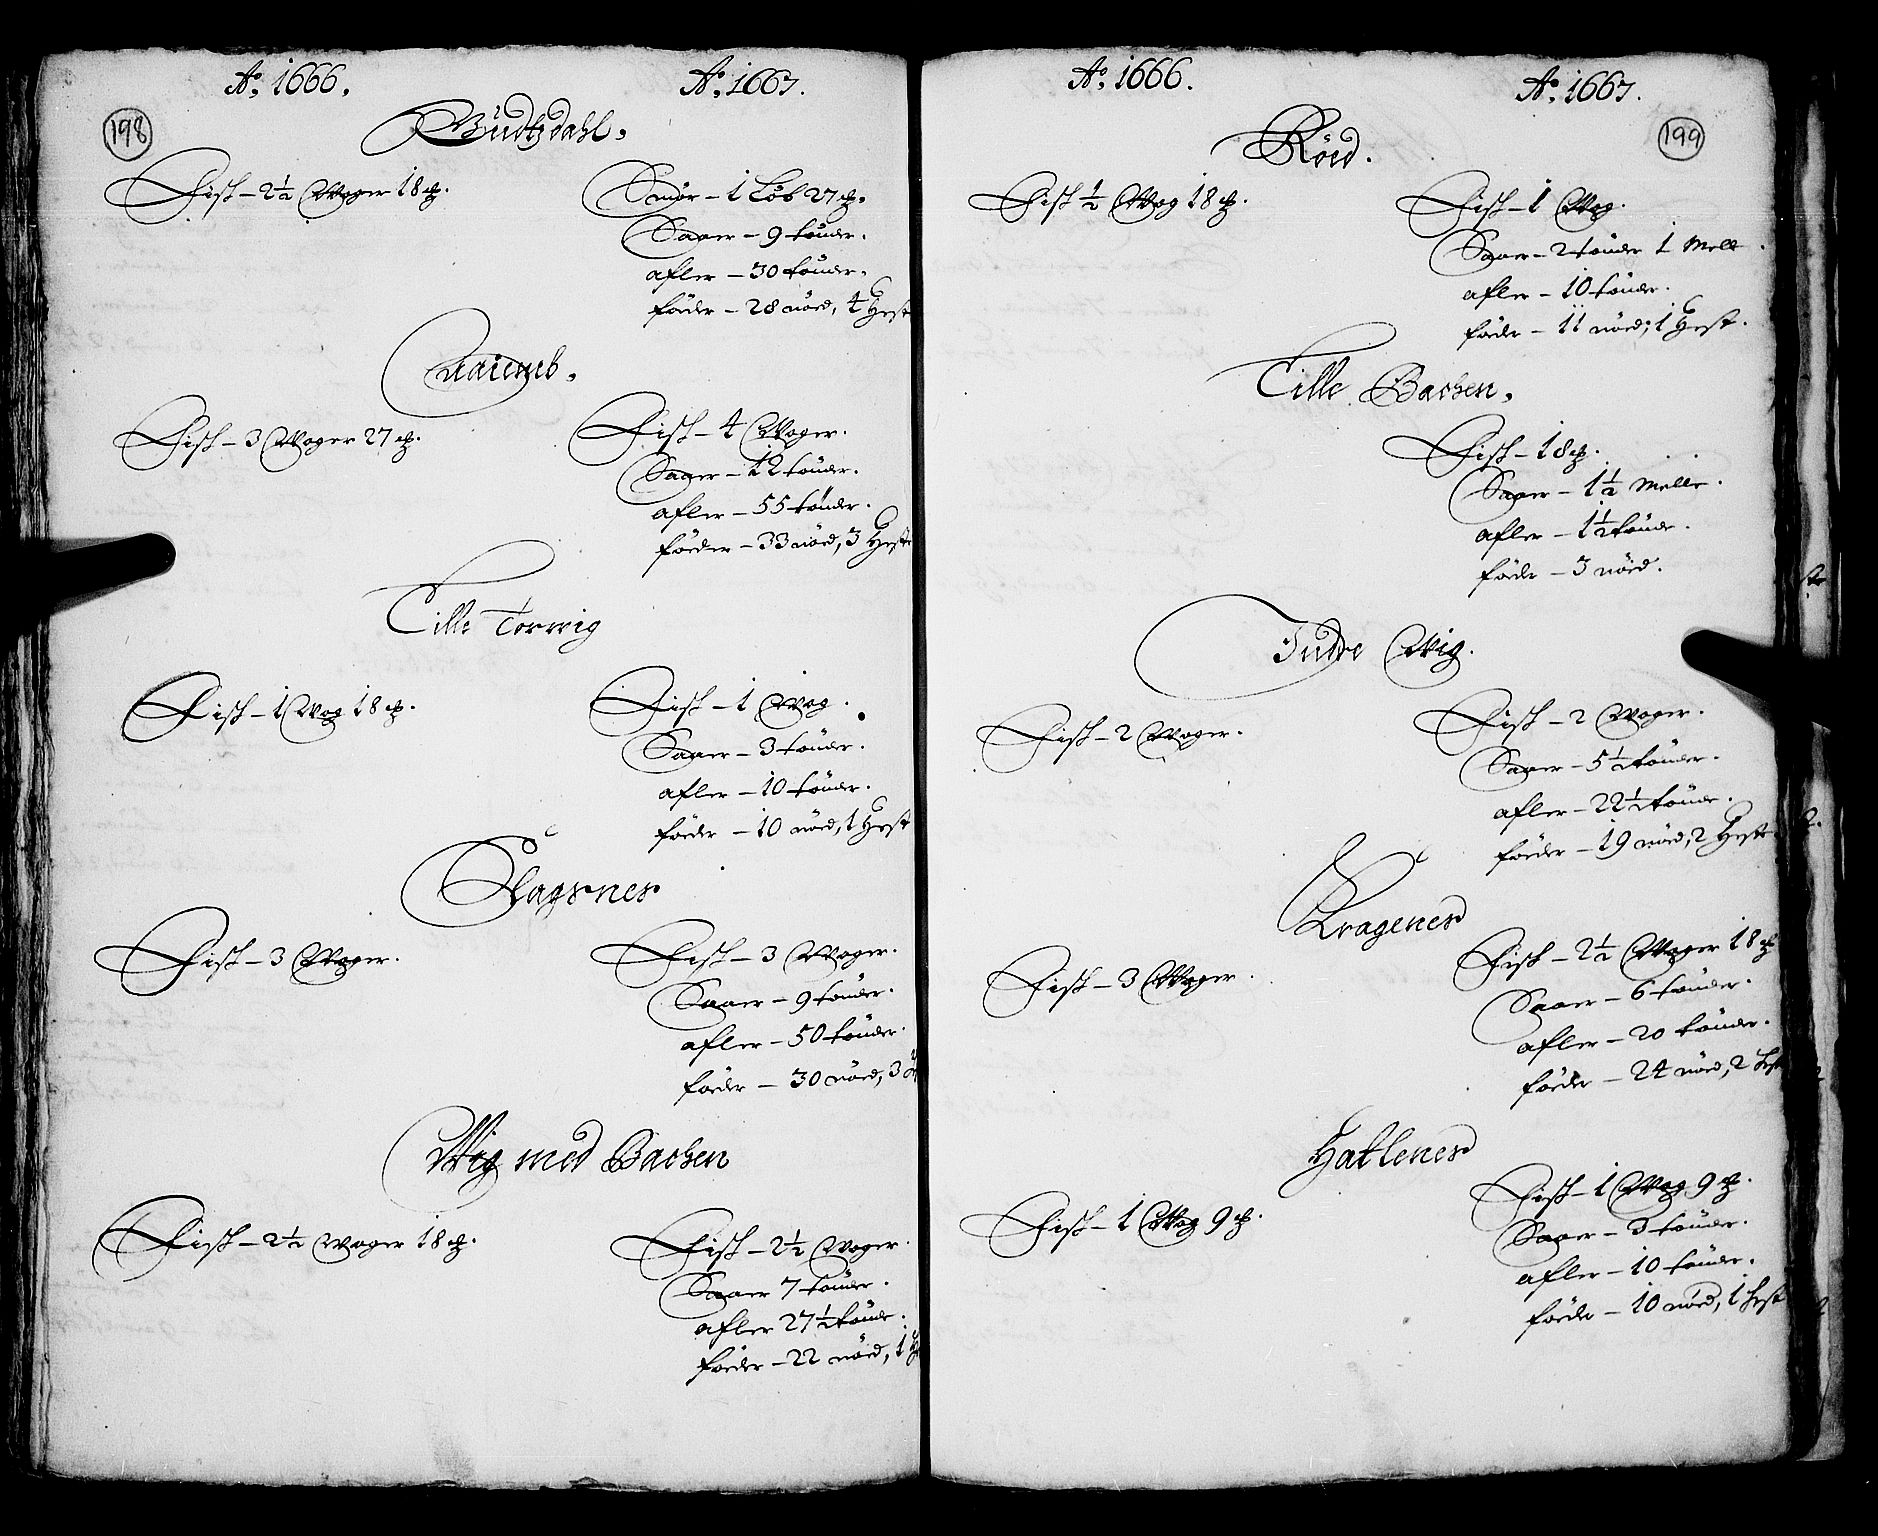 198
Ao. 1666. Ao. 1667.
Budtzdahl.
Fisk - 2½ Woger 18 ℔.
Smør - 1 Løb 27 ℔.
Saaer - 9 tønder.
afler - 30 tønder.
føeder - 28 nöed, 4 Hest
Fisk - 3 Woger 27 ℔.
Fisk - 4 Woger.
Saaer - 12 tønder.
afler - 55 tønder.
føeder - 33 nöed, 3 Heste
Lille Torwig
Fisk - 1 Wog 18 ℔.
Fisk - 1 Wog.
Saaer - 3 tønder.
afler - 10 tønder.
føeder - 10 nöed, 1 Hest
Slagsnes
Fisk - 3 Woger.
Fisk - 3 Woger.
Saaer - 9 tønder.
afler - 50 tønder.
føeder - 30 nöed, 3
Wiig med Backen
Fisk - 2½ Woger 18 ℔.
Fisk - 2½ Woger.
Saaer 7 tønder.
afler 27½ tønde.
føeder - 22 nöed, 1 He
199
Ao. 1666. Ao. 1667.
Röed.
Fisk ½ Wog 18 ℔.
Fisk - 1 Wog.
Saaer - 2 tønder 1 Mell
afler - 10 tønder.
føeder - 11 nöed, 1 Hest.
Lille Backen.
Fisk - 18 ℔.
Saaer - 1½ Melle.
afler - 1½ tønde.
føede - 3 nöed.
Indre Wiig.
Fisk - 2 Woger.
Fisk - 2 Woger.
Saaer - 5½ tønder.
afler - 22½ tønde.
føeder - 19 nöed, 2 Heste
Kragenes
Fisk - 3 Woger.
Fisk - 2½ Woger 18 ℔
Saaer - 6 tønder.
afler - 20 tønder.
føeder - 24 nöed, 2 Hest
Hatlenes
Fisk - 1 Wog 9 ℔.
Fisk - 1 Wog 9 ℔.
Saaer - 3 tønder.
afler - 10 tønder.
føede - 10 nöed, 1 Hest